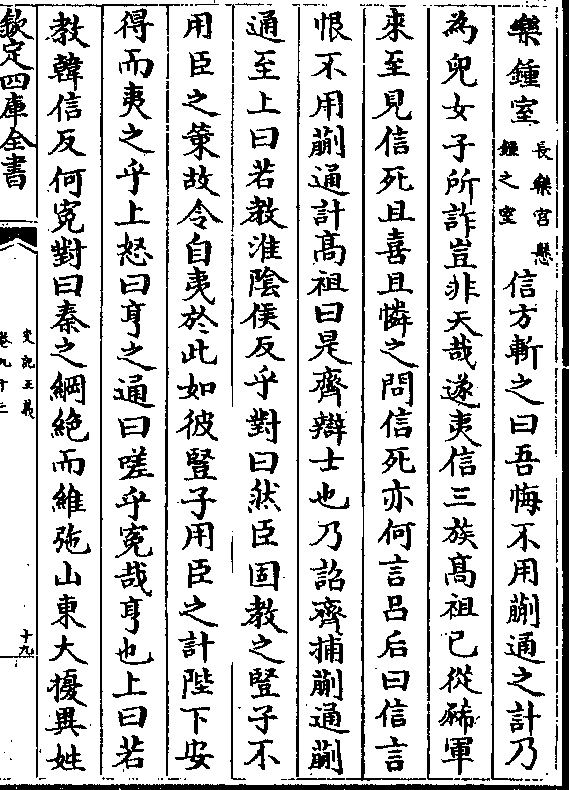 樂鍾室長樂宮懸鍾之室信方斬之曰吾悔不用蒯通之計乃
為兒女子所詐豈非天哉遂夷信三族髙祖已從豨軍
來至見信死且喜且憐之問信死亦何言呂后曰信言
恨不用蒯通計髙祖曰是齊辯士也乃詔齊捕蒯通蒯
通至上曰若教淮陰侯反乎對曰然臣固教之豎子不
用臣之策故令自夷於此如彼豎子用臣之計陛下安
得而夷之乎上怒曰亨之通曰嗟乎寃哉亨也上曰若
教韓信反何寃對曰秦之綱絶而維弛山東大擾異姓
欽定四庫全書
史記正義
卷九十二
十九